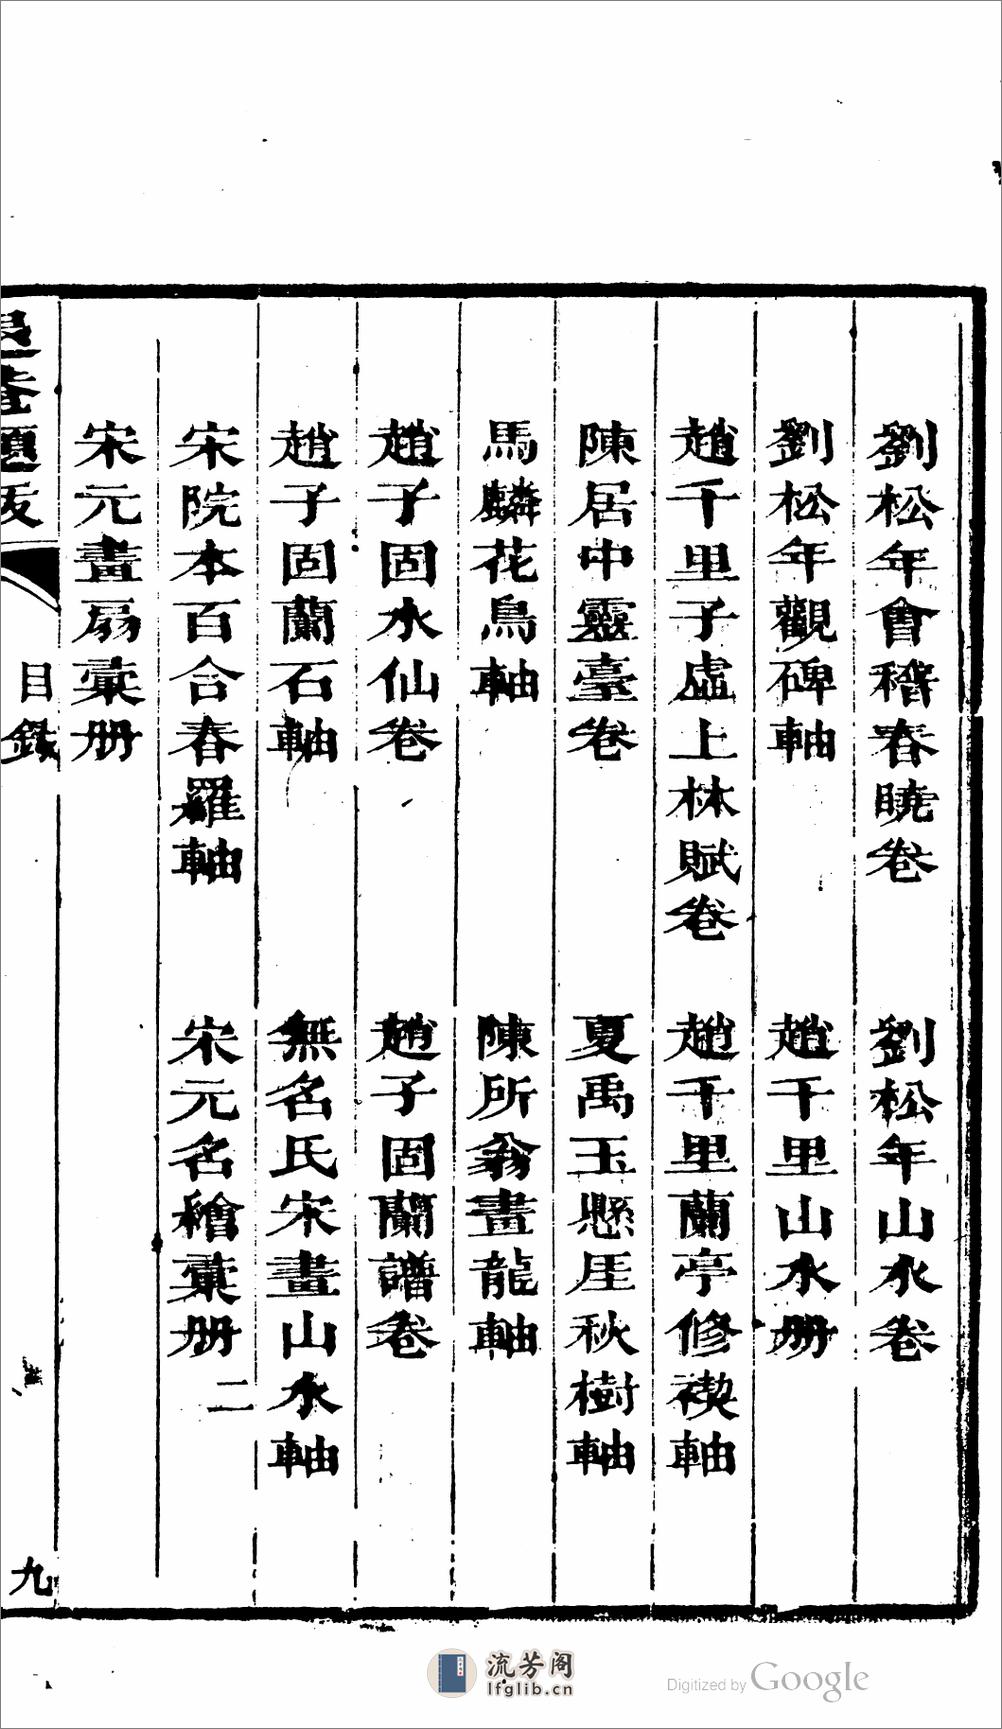 劉松年會稽春曉卷　劉松年山水卷
劉松年觀碑軸　趙千里山水册
趙千里子虛上林賦卷　趙千里蘭亭修禊軸
陳居中靈臺卷　夏禹玉懸厓秋樹軸
馬麟花鳥軸　陳所翁畫龍軸
趙子固水仙卷　趙子固蘭譜卷
趙子固蘭石軸　無名氏宋畫山水軸
宋院本百合春羅軸　宋元名繪彙册二
宋元畫扇彙册
退菴題跋　目錄　九
流芳阁
lfglib.cn
Digitized by Google